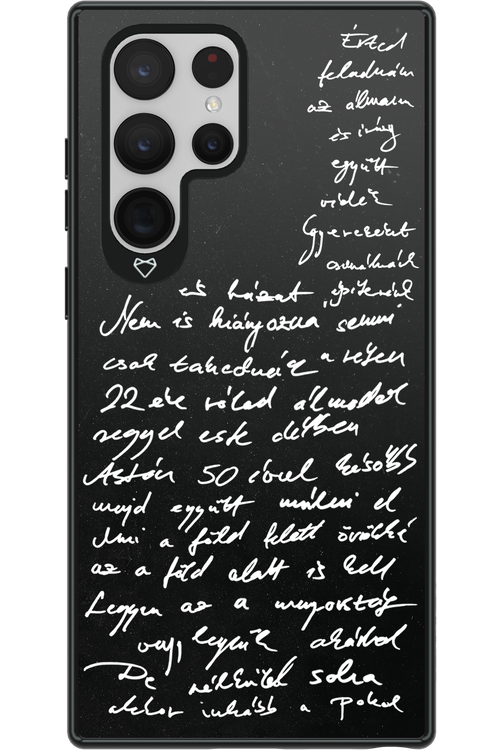 Érted
feladnám
az álmaim
és így
együtt
vidék
Gyerekeket
csinálnánk
és házat építenénk
Nem is hiányozna semmi
csak takednáz a részem
22 éve rólad álmodok
reggel este délben
Aztán 50 évvel később
majd együtt múlni el
Ami a föld felett örökké
az a föld alatt is kell
Legyen az a mennyország
vagy legyünk akárhol
De nélküled soha
akkor inkább a pokol